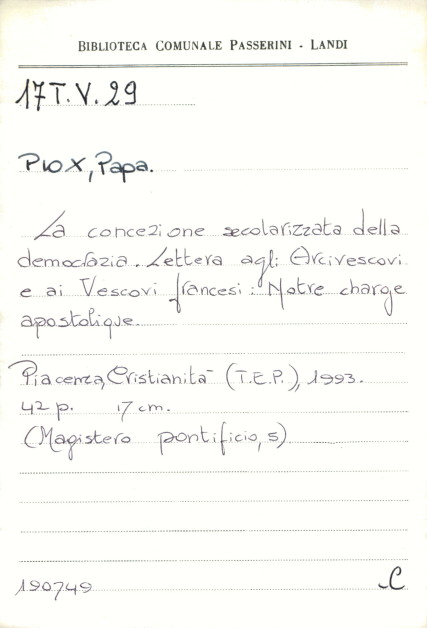 BIBLIOTECA COMUNALE PASSERINI - LANDI
17 T. V. 29
Pio X, Papa.
La concezione secolarizzata della
democrazia. Lettera agli Arcivescovi
e ai Vescovi francesi: Notre charge
apostolique.
Piacenza, Cristianità (T.E.P.), 1993.
42 p. 17 cm.
(Magistero pontificio, 5)
190749 C